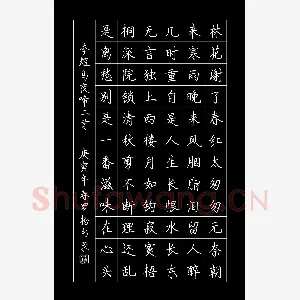 林花谢了春红太匆匆无奈朝
来寒雨晚来风胭脂泪留人醉
几时重自是人生长恨水长东
无言独上西楼月如钩寂寞梧
桐深院锁清秋剪不断理还乱
是离愁别是一番滋味在心头
李煜乌夜啼二首 庚寅年春
Shufawang.CN